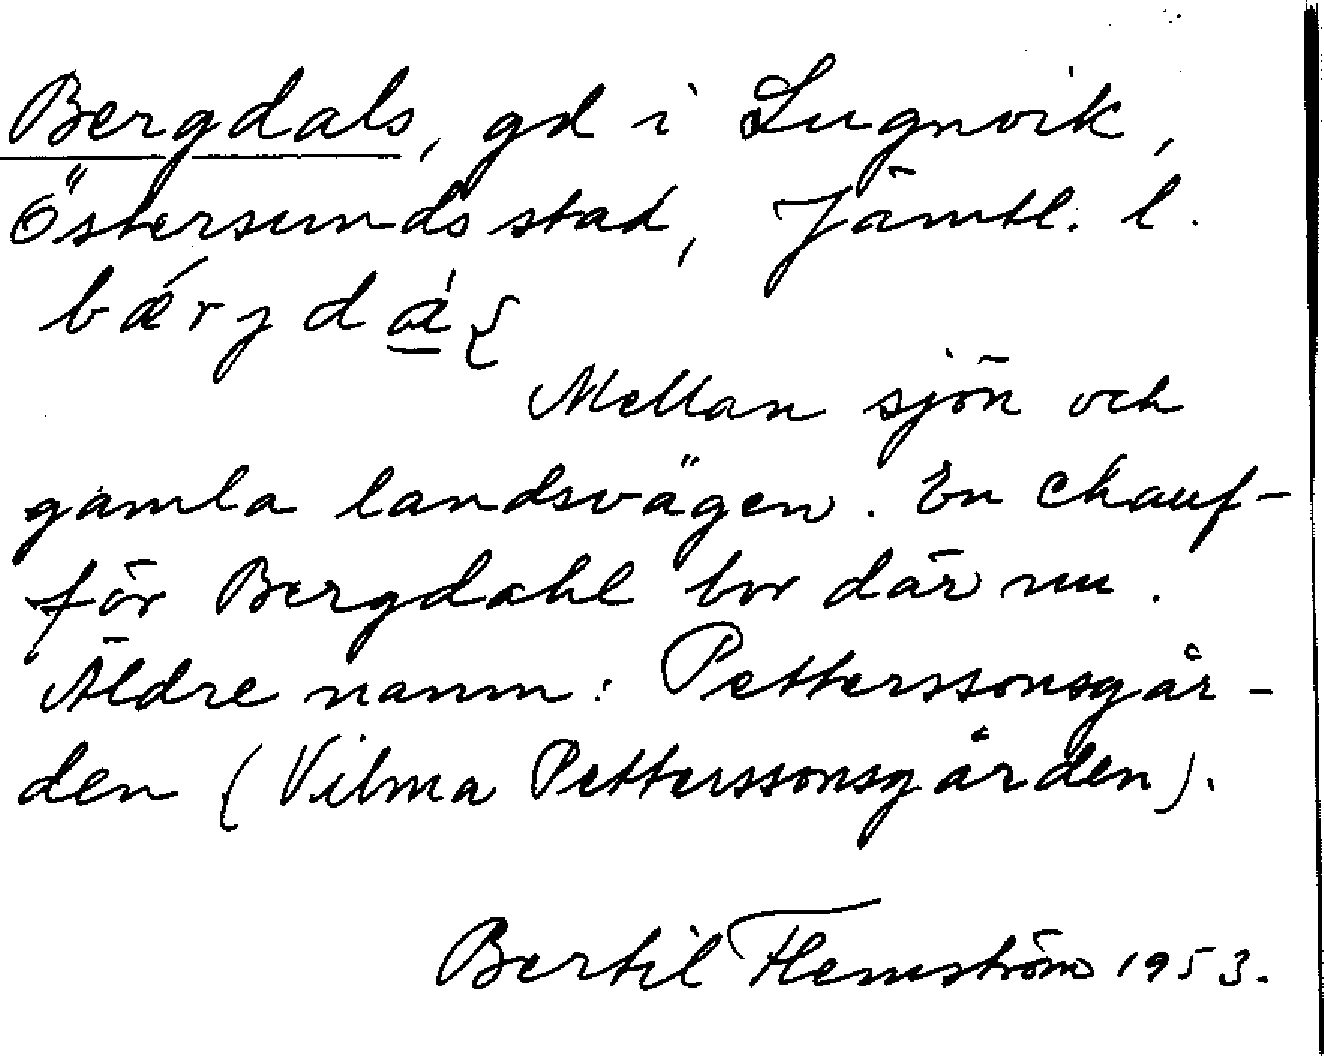 Bergdals, gd i Lugnvik,
Östersunds stad, Jämtl. l.
Mellan sjön och
gamla landsvägen. En chauf-
för Bergdahl bor där nu.
Äldre namn: Petterssonsgår-
den (Vilma Petterssonsgården).
Bertil Flemström 1953.